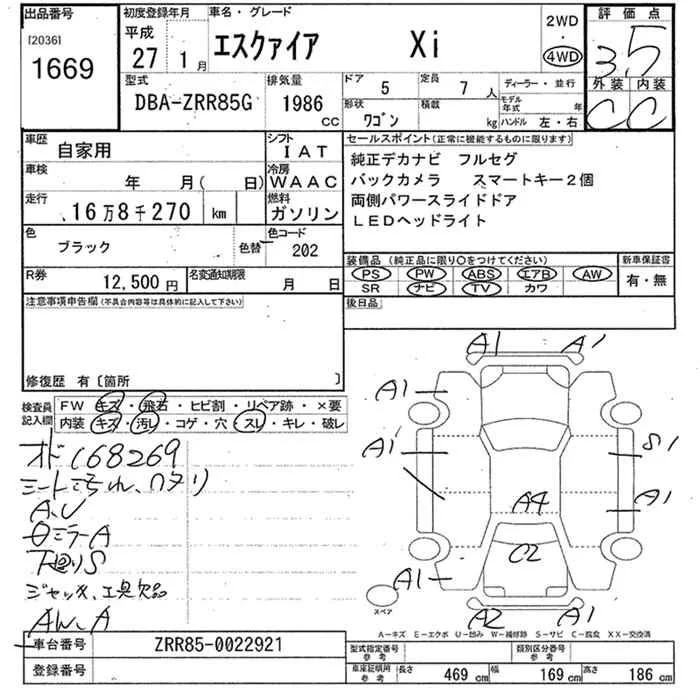 出品番号
[2036]
1669
初度登録年月
平成
27 1月
車名・グレード
エスクァイア Xi
2WD
・
4WD
評価点
3.5
外装 内装
C C
型式
DBA-ZRR85G
排気量
1986
CC
ドア 5
定員 7人
ディーラー・並行
形状
ワゴン
積載
kg
モデル年式 年
ハンドル 左・右
車歴
自家用
シフト
IAT
車検
年 月( 日)
冷房
WAAC
走行
16万8千270 km
燃料
ガソリン
色
ブラック
色替
色コード
202
R券
12,500円
名変通知期限
月 日
セールスポイント(正常に機能するものに限ります)
純正デカナビ フルセグ
バックカメラ スマートキー2個
両側パワースライドドア
LEDヘッドライト
装備品(純正品に限り〇をつけてください)
新車保証書
PS PW ABS エアB AW
有・無
SR ナビ TV カワ
後日品
注意事項申告欄(不具合内容等は具体的に記入して下さい)
修復歴 有〔箇所
検査員
記入欄
FW キズ・飛石・ヒビ割・リペア跡・×要
内装 キズ・汚レ・コゲ・穴・スレ・キレ・破レ
オド168269
シートこすれ、ワタリ
A、U
ミラーA
下回りS
ジャッキ、工具欠品
AW、A
A1 A1
A1
A1
S1
A1
A4
C2
A1
A2 A1
スペア
A-キズ E-エクボ U-凹み W-補修跡 S-サビ C-腐食 XX-交換済
車台番号
ZRR85-0022921
登録番号
型式指定番号
参考
類別区分番号
参考
車庫証明用
参考
長さ 469cm
幅 169cm
高さ 186cm